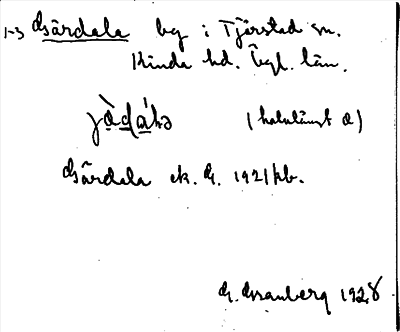 1-3 Gärdala by i Tjärstad sn.
Kinda hd. Ögl. län.
(halvlångt a)
Gärdala ek. G. 1921 kb.
G. Granberg 1928